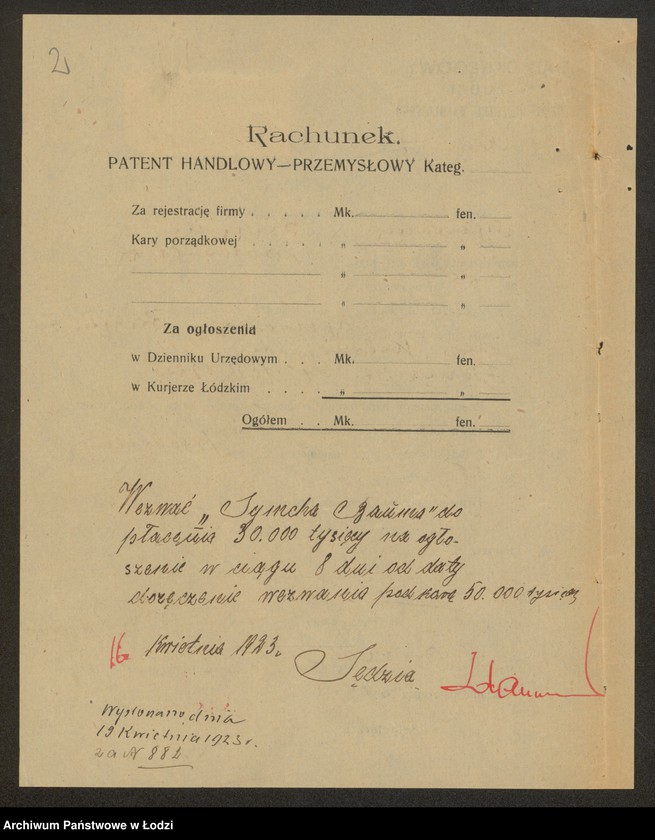 2
Rachunek.
PATENT HANDLOWY—PRZEMYSŁOWY Kateg.
Za rejestrację firmy . . . . . Mk. fen.
Kary porządkowej . . . . . „ „
„ „
„ „
Za ogłoszenia
w Dzienniku Urzędowym . . . Mk. fen.
w Kurjerze Łódzkim . . . . „ „
Ogółem . . Mk. fen.
Wezwać „Symcha Bauma" do
płacenia 30.000 tysięcy na ogło-
szenie w ciągu 8 dni od daty
doręczenie wezwania pod karą 50.000 tysięcy
16 Kwietnia 1923.
Sędzia
Wykonano dnia
19 Kwietnia 1923 r.
za N 882
Archiwum Państwowe w Łodzi